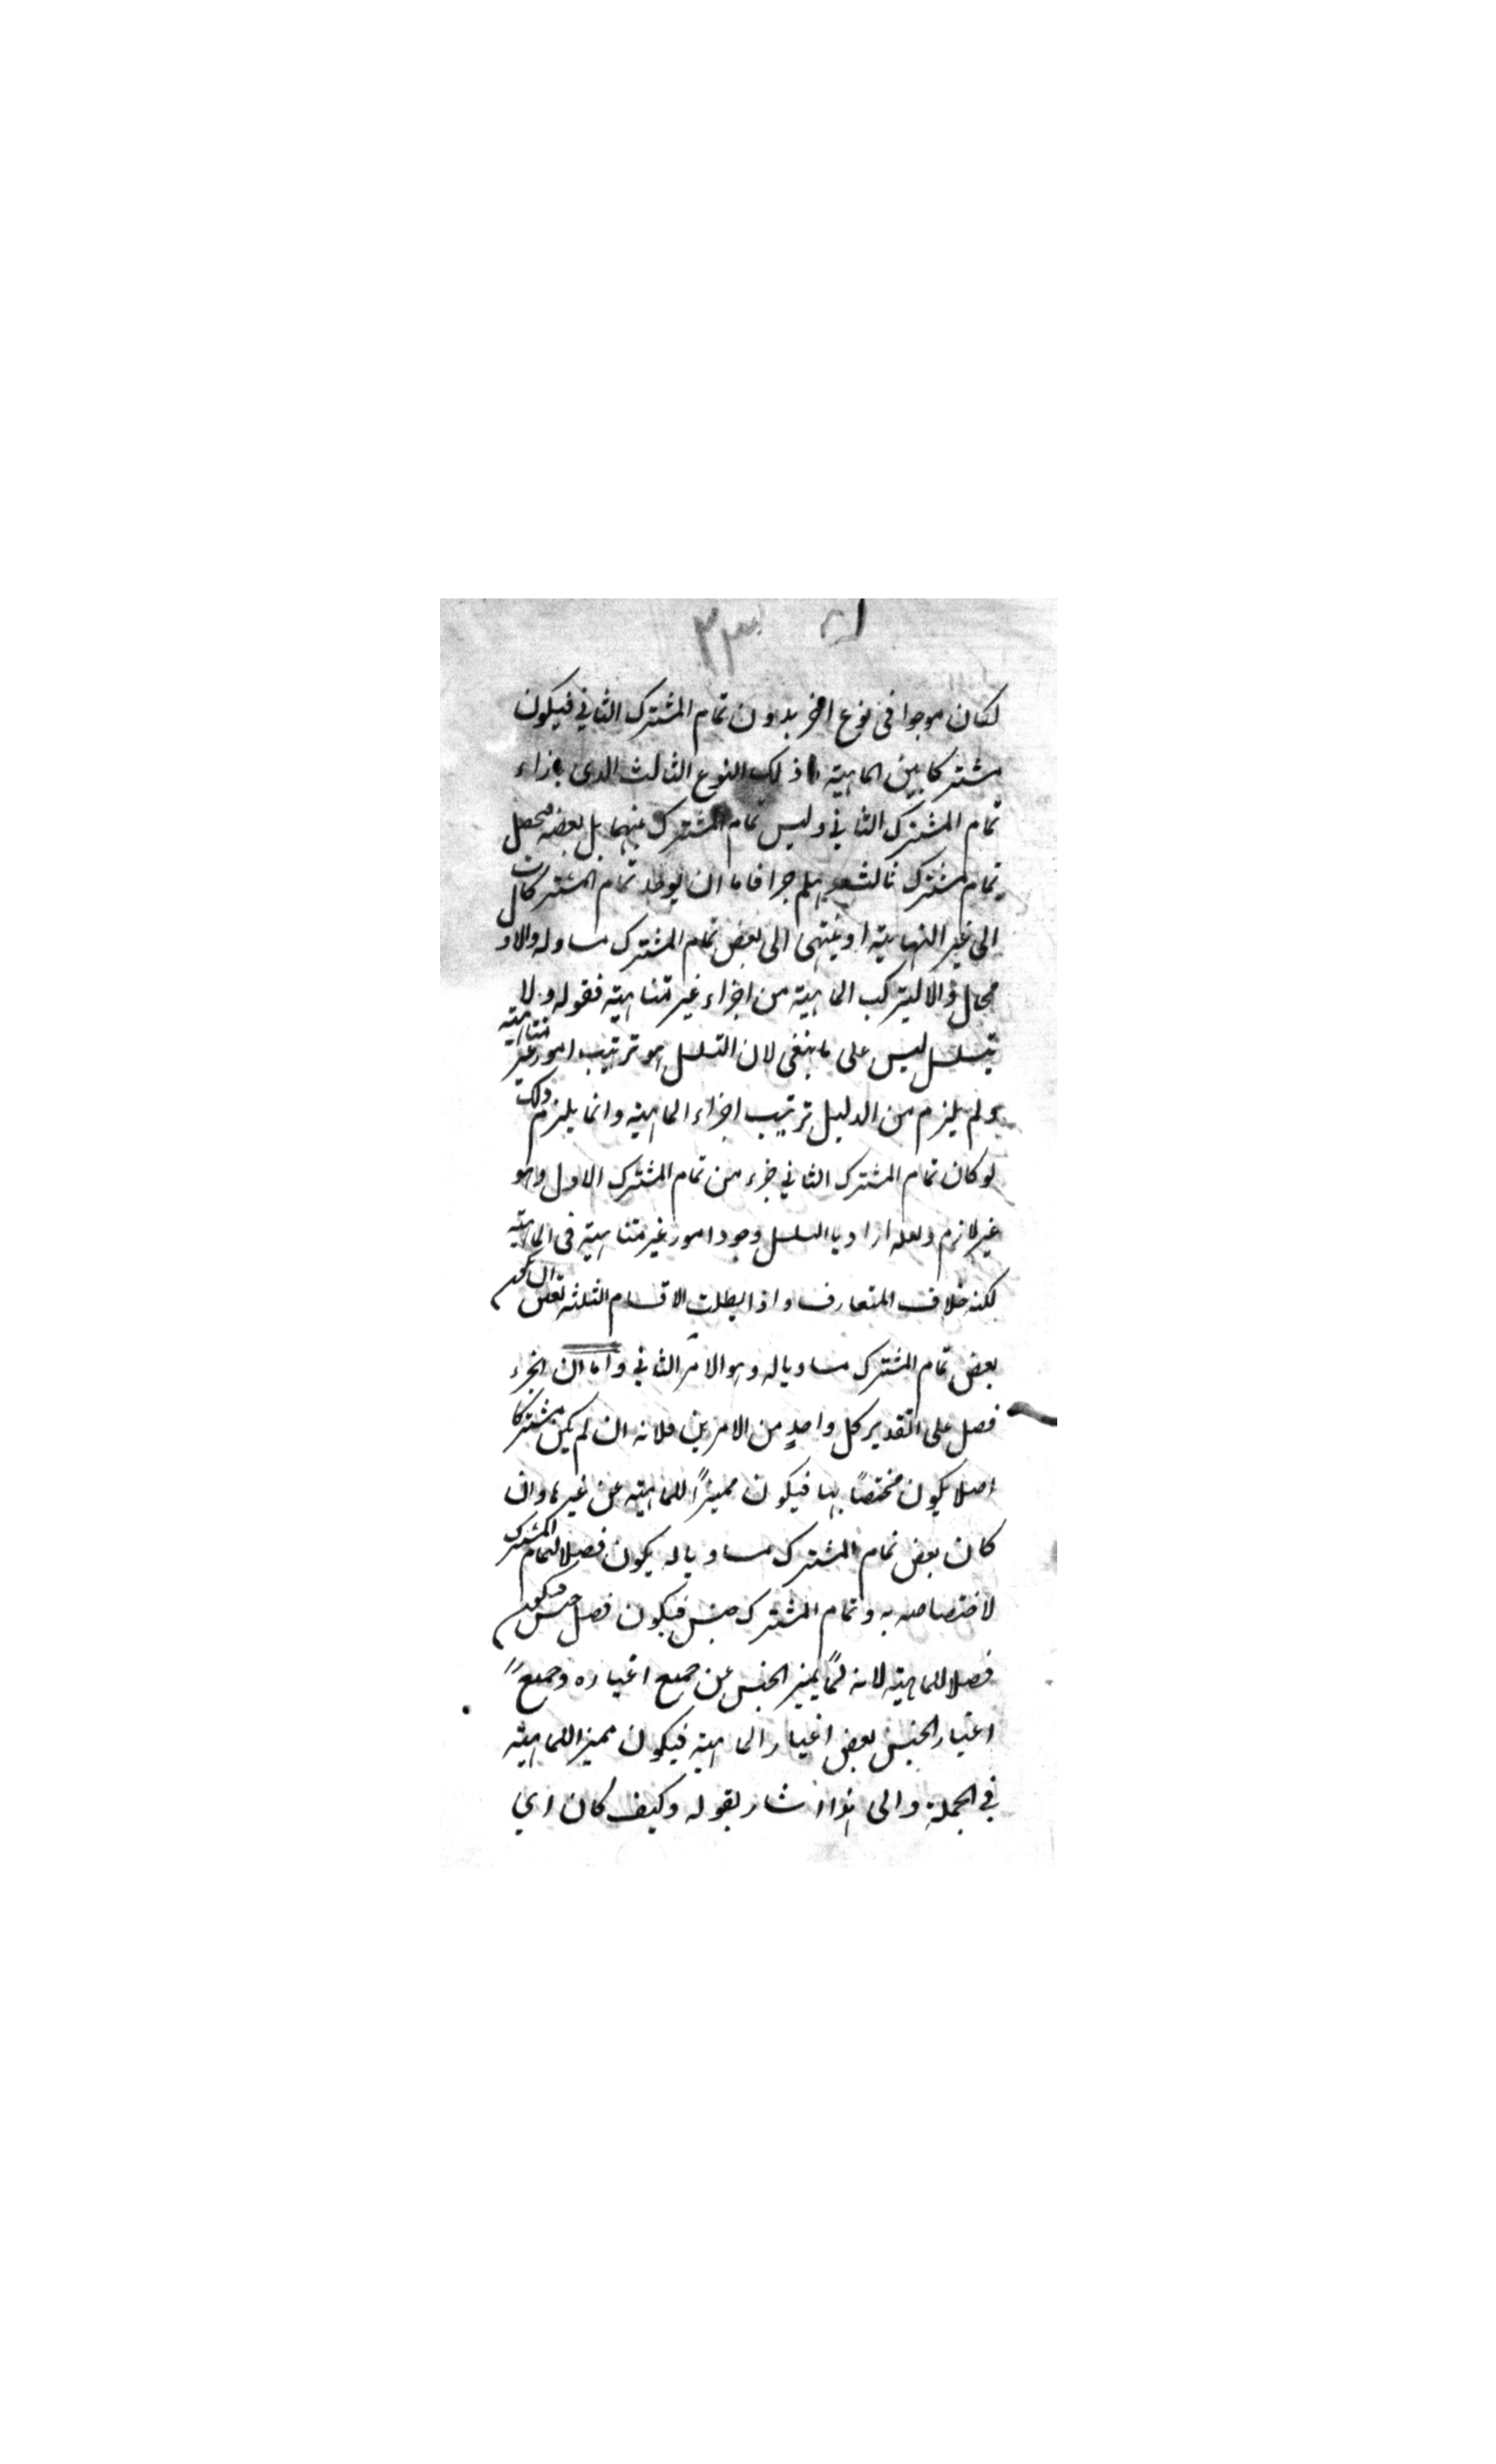 ٣٣
لكان موجوا فى نوع اخر بدون تمام المشترك الثاني فيكون
مشتركا بين الماهية و ذلك النوع الثالث الذى بازاء
تمام المشترك الثاني وليس تمام المشترك بينهما بل بعضه فحصل
تمام مشترك ثالث هلم جرا فاما ان يوجد تمام المشتركات
الى غير النهاية او ينتهى الى بعض تمام المشترك مساو له والاول
محال والا ليتركب الماهية من اجزاء غير متناهية فقوله ولا
يتسلسل ليس على ما ينبغى لان التسلسل هو ترتيب امور غير متناهية
ولم يلزم من الدليل ترتيب اجزاء الماهية وانما يلزم ذلك
لو كان تمام المشترك الثاني جزء من تمام المشترك الاول وهو
غير لازم ولعله اراد با التسلسل وجود امور غير متناهية فى الماهية
لكنه خلاف المتعارف واذا بطلت الاقسام الثلثة تعين ان يكون
بعض تمام المشترك مساويا له وهو الامر الثاني واما ان الجزء
فصل على التقدير كل واحدٍ من الامرين فلانه ان لم يكن مشتركا
اصلا يكون مختصاً بها فيكون مميزاً للماهية عن غيرها وان
كان بعض تمام المشترك مساويا له يكون فصلا لتمام المشترك
لاختصاصه به وتمام المشترك جنس فيكون فصل جنس فيكون
فصلا للماهية لانه لمّا يميز الجنس عن جميع اغياره وجميع
اغيار الجنس بعض اغيار الماهية فيكون مميزا للماهية
في الجملة والى هذا اشار بقوله وكيف كان اي